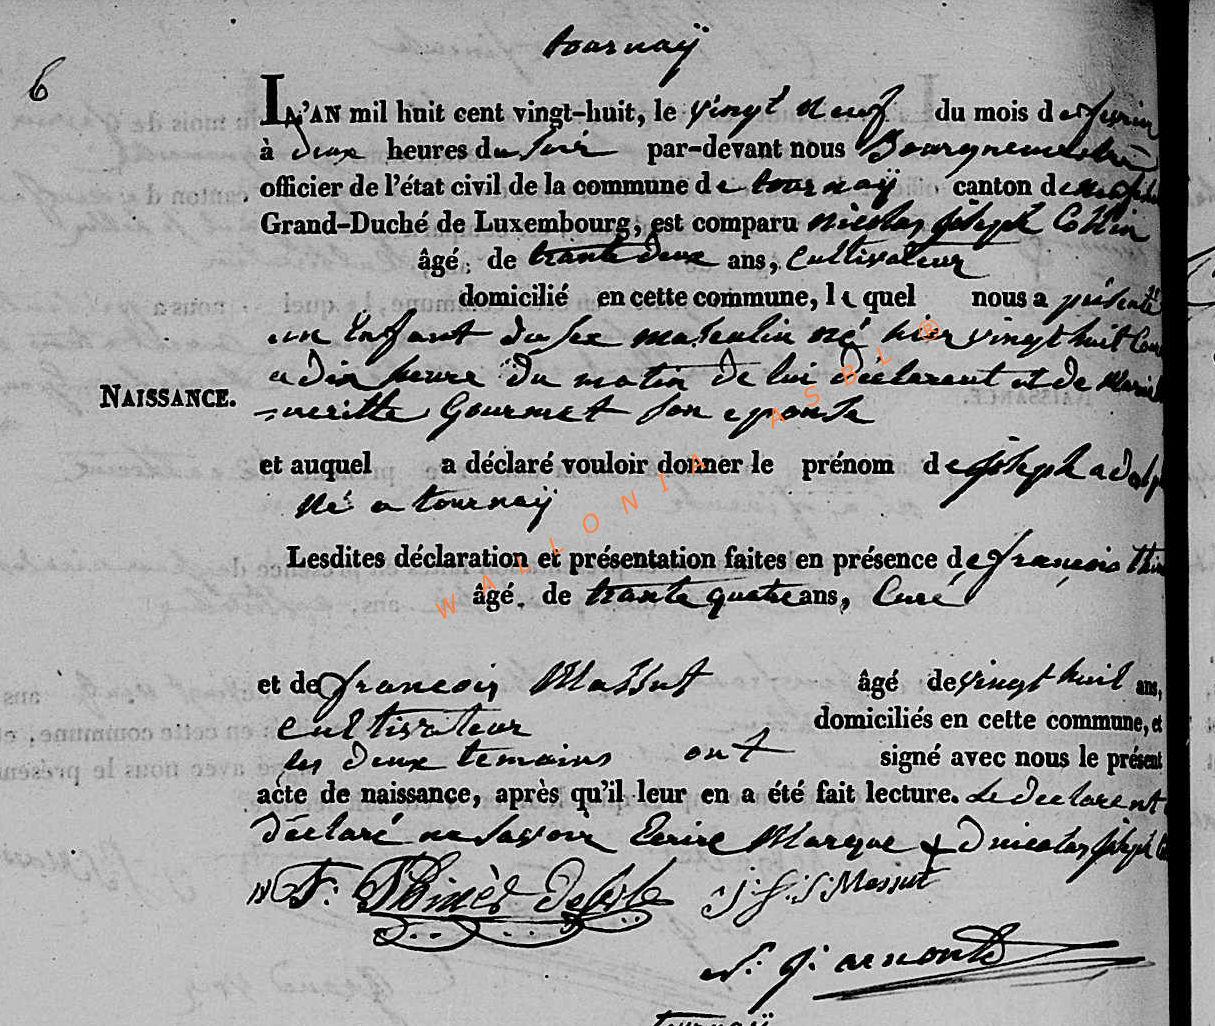 tournaÿ
6
L'AN mil huit cent vingt-huit, le vingt neuf du mois de fevrier
à deux heures du soir par-devant nous Bourgnemestre
officier de l'état civil de la commune de tournaÿ canton de
Grand-Duché de Luxembourg, est comparu nicolas joseph Collin
âgé de trante deux ans, Cultivateur
domicilié en cette commune, lequel nous a présenté
un Enfant du sex masculin né hier vingt huit Cour
a dix heure du matin de lui déclarent et de Marie
NAISSANCE.
gueritte Gourmet son epouse
et auquel a déclaré vouloir donner le prénom de joseph adolp
né a tournaÿ
Lesdites déclaration et présentation faites en présence de françois thin
âgé de trante quatre ans, Curé
et de francois Massut âgé de vingt huit ans,
Cultivateur domiciliés en cette commune, et
les deux temains ont signé avec nous le présent
acte de naissance, après qu'il leur en a été fait lecture. Le declarent
déclaré ne savoir Ecrire Marque + D nicolas joseph Co
F: Thinès J: Massut
N: j: arnould
tournaÿ
WALLONIA ASBL ®